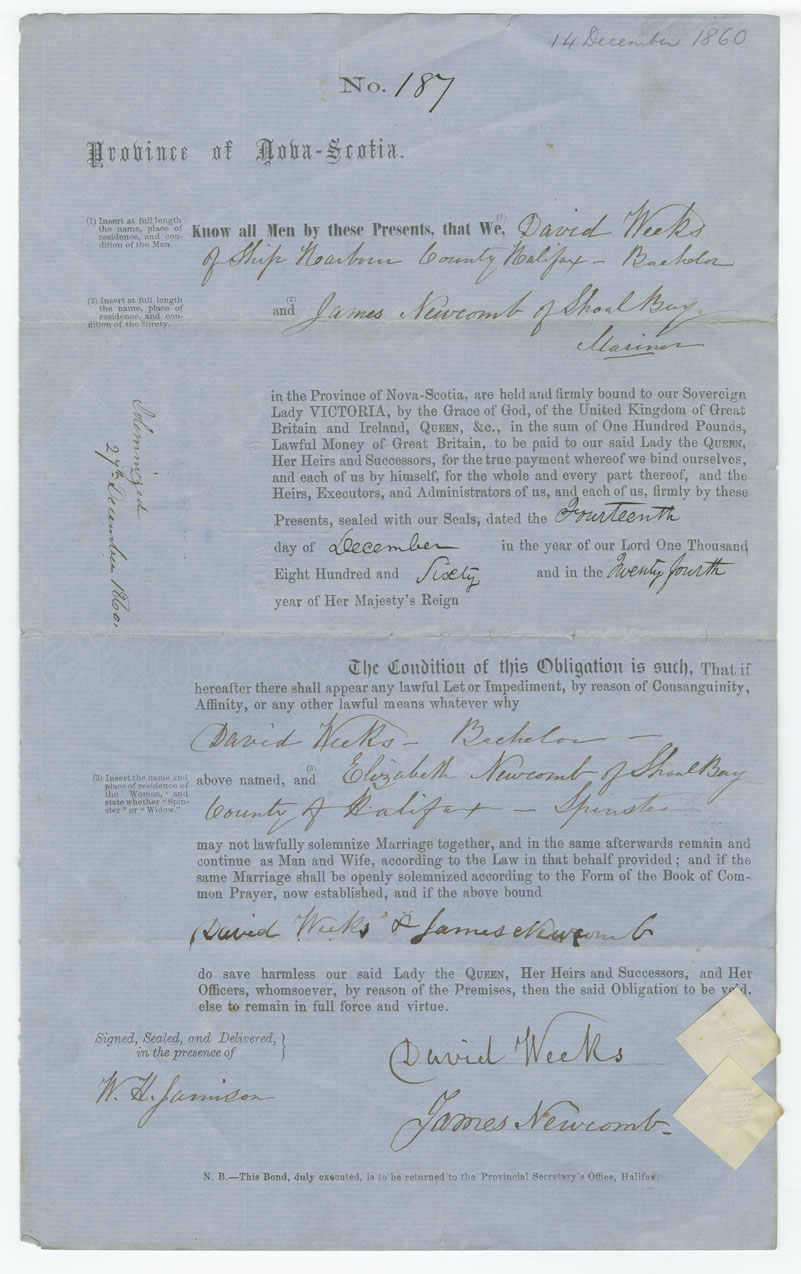 14 December 1860
No. 187
Province of Nova-Scotia.
(1) Insert at full length
the name, place of
residence, and con-
dition of the Man.
Know all Men by these Presents, that We, (1) David Weeks
of Ship Harbour County Halifax – Bachelor
(2) Insert at full length
the name, place of
residence, and con-
dition of the Surety.
and (2) James Newcomb of Shoal Bay.
Mariner
Solemnized
27th December 1860.
in the Province of Nova-Scotia, are held and firmly bound to our Sovereign
Lady VICTORIA, by the Grace of God, of the United Kingdom of Great
Britain and Ireland, QUEEN, &c., in the sum of One Hundred Pounds,
Lawful Money of Great Britain, to be paid to our said Lady the QUEEN,
Her Heirs and Successors, for the true payment whereof we bind ourselves,
and each of us by himself, for the whole and every part thereof, and the
Heirs, Executors, and Administrators of us, and each of us, firmly by these
Presents, sealed with our Seals, dated the Fourteenth
day of December in the year of our Lord One Thousand
Eight Hundred and Sixty and in the Twenty fourth
year of Her Majesty's Reign
The Condition of this Obligation is such, That if
hereafter there shall appear any lawful Let or Impediment, by reason of Consanguinity,
Affinity, or any other lawful means whatever why
David Weeks – Bachelor –
(3) Insert the name and
place of residence of
the Woman, and
state whether "Spin-
ster" or "Widow."
above named, and (3) Elizabeth Newcomb of Shoal Bay
County of Halifax – Spinster –
may not lawfully solemnize Marriage together, and in the same afterwards remain and
continue as Man and Wife, according to the Law in that behalf provided; and if the
same Marriage shall be openly solemnized according to the Form of the Book of Com-
mon Prayer, now established, and if the above bound
David Weeks & James Newcomb
do save harmless our said Lady the QUEEN, Her Heirs and Successors, and Her
Officers, whomsoever, by reason of the Premises, then the said Obligation to be void.
else to remain in full force and virtue.
Signed, Sealed, and Delivered,
in the presence of
David Weeks
W. H. Jamison
James Newcomb
N. B.—This Bond, duly executed, is to be returned to the Provincial Secretary's Office, Halifax.